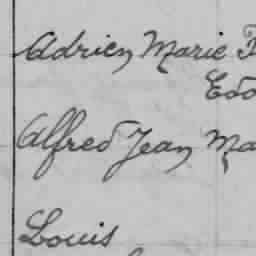 Adrien Marie
Alfred Jean
Louis